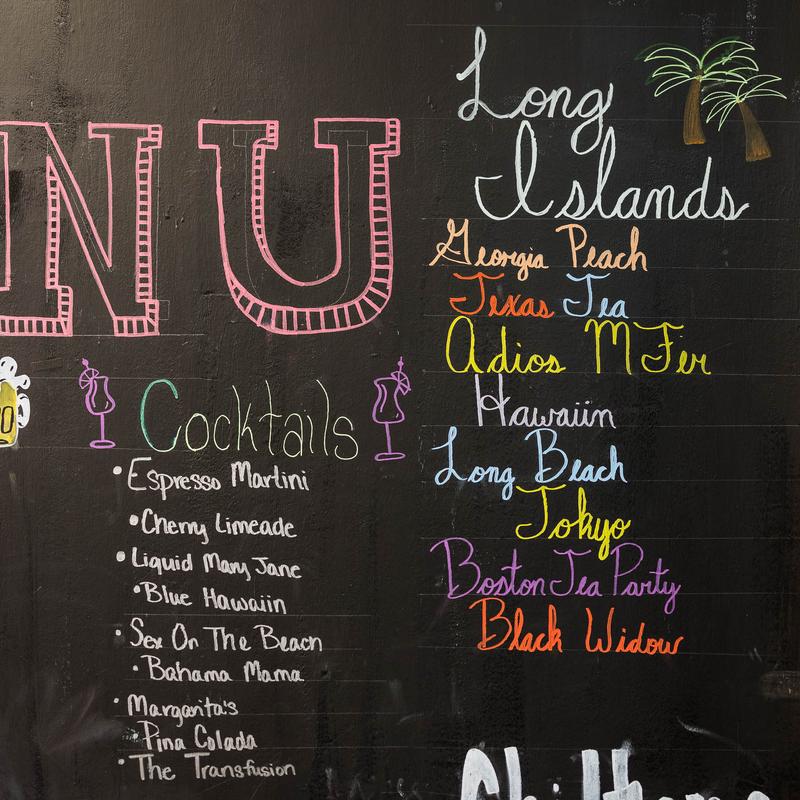 NU
Cocktails
Espresso Martini
Cherry Limeade
Liquid Mary Jane
Blue Hawaiin
Sex On The Beach
Bahama Mama
Margarita's
Pina Colada
The Transfusion
Long
Islands
Georgia Peach
Texas Tea
Adios MFer
Hawaiin
Long Beach
Tokyo
Boston Tea Party
Black Widow